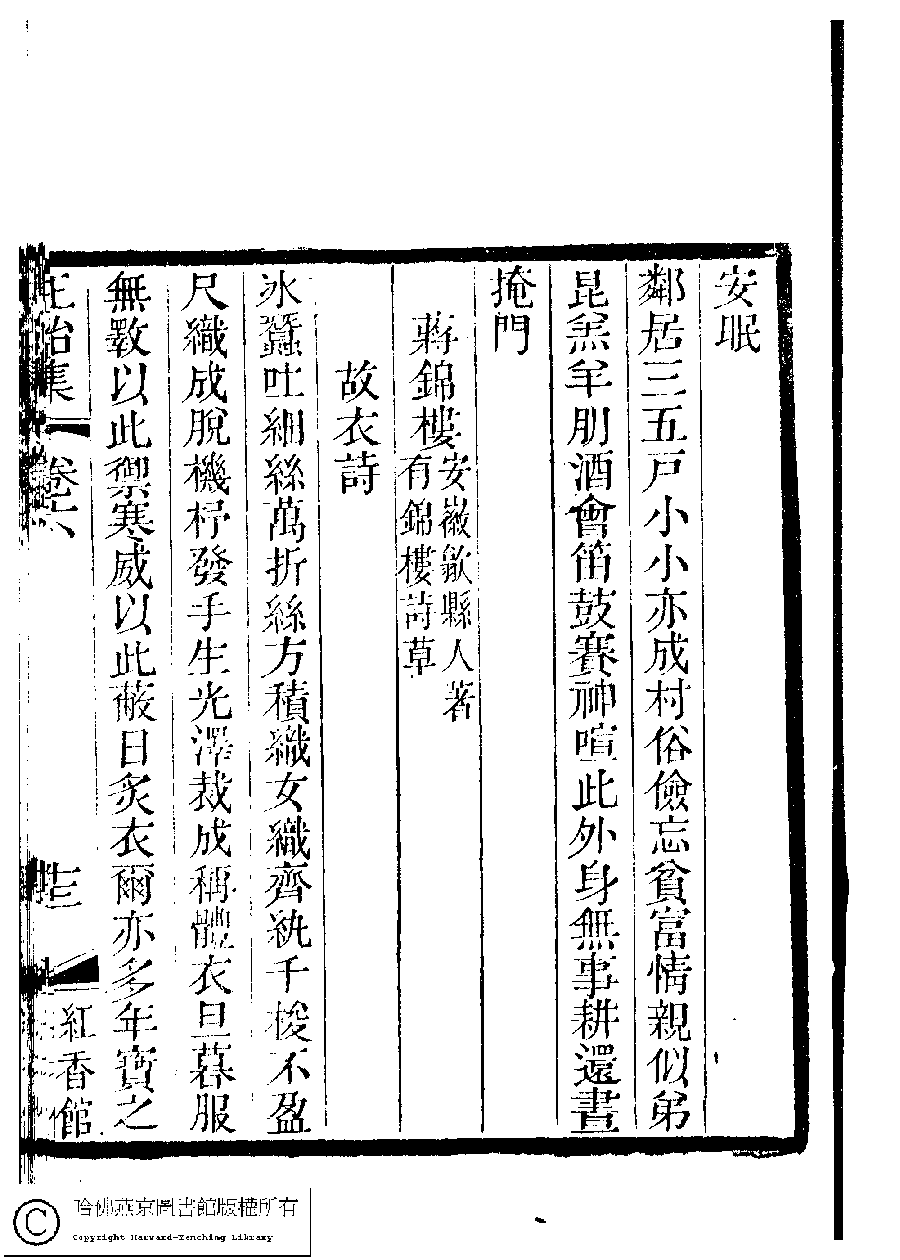 安眠
鄰居三五戸小小亦成村俗儉忘貧富情親似弟
昆羔羊朋酒會笛鼓賽神喧此外身無事耕還晝
掩門
蔣錦樓安徽歙縣人著有錦樓詩草
故衣詩
氷蠶吐細絲萬折絲方積織女織齊紈千梭不盈
尺織成脫機杼發手生光澤裁成稱體衣旦暮服
無斁以此禦寒威以此蔽日炙衣爾亦多年寶之
正始集 卷六 紅香館
哈佛燕京圖書館版權所有
Copyright Harvard-Yenching Library